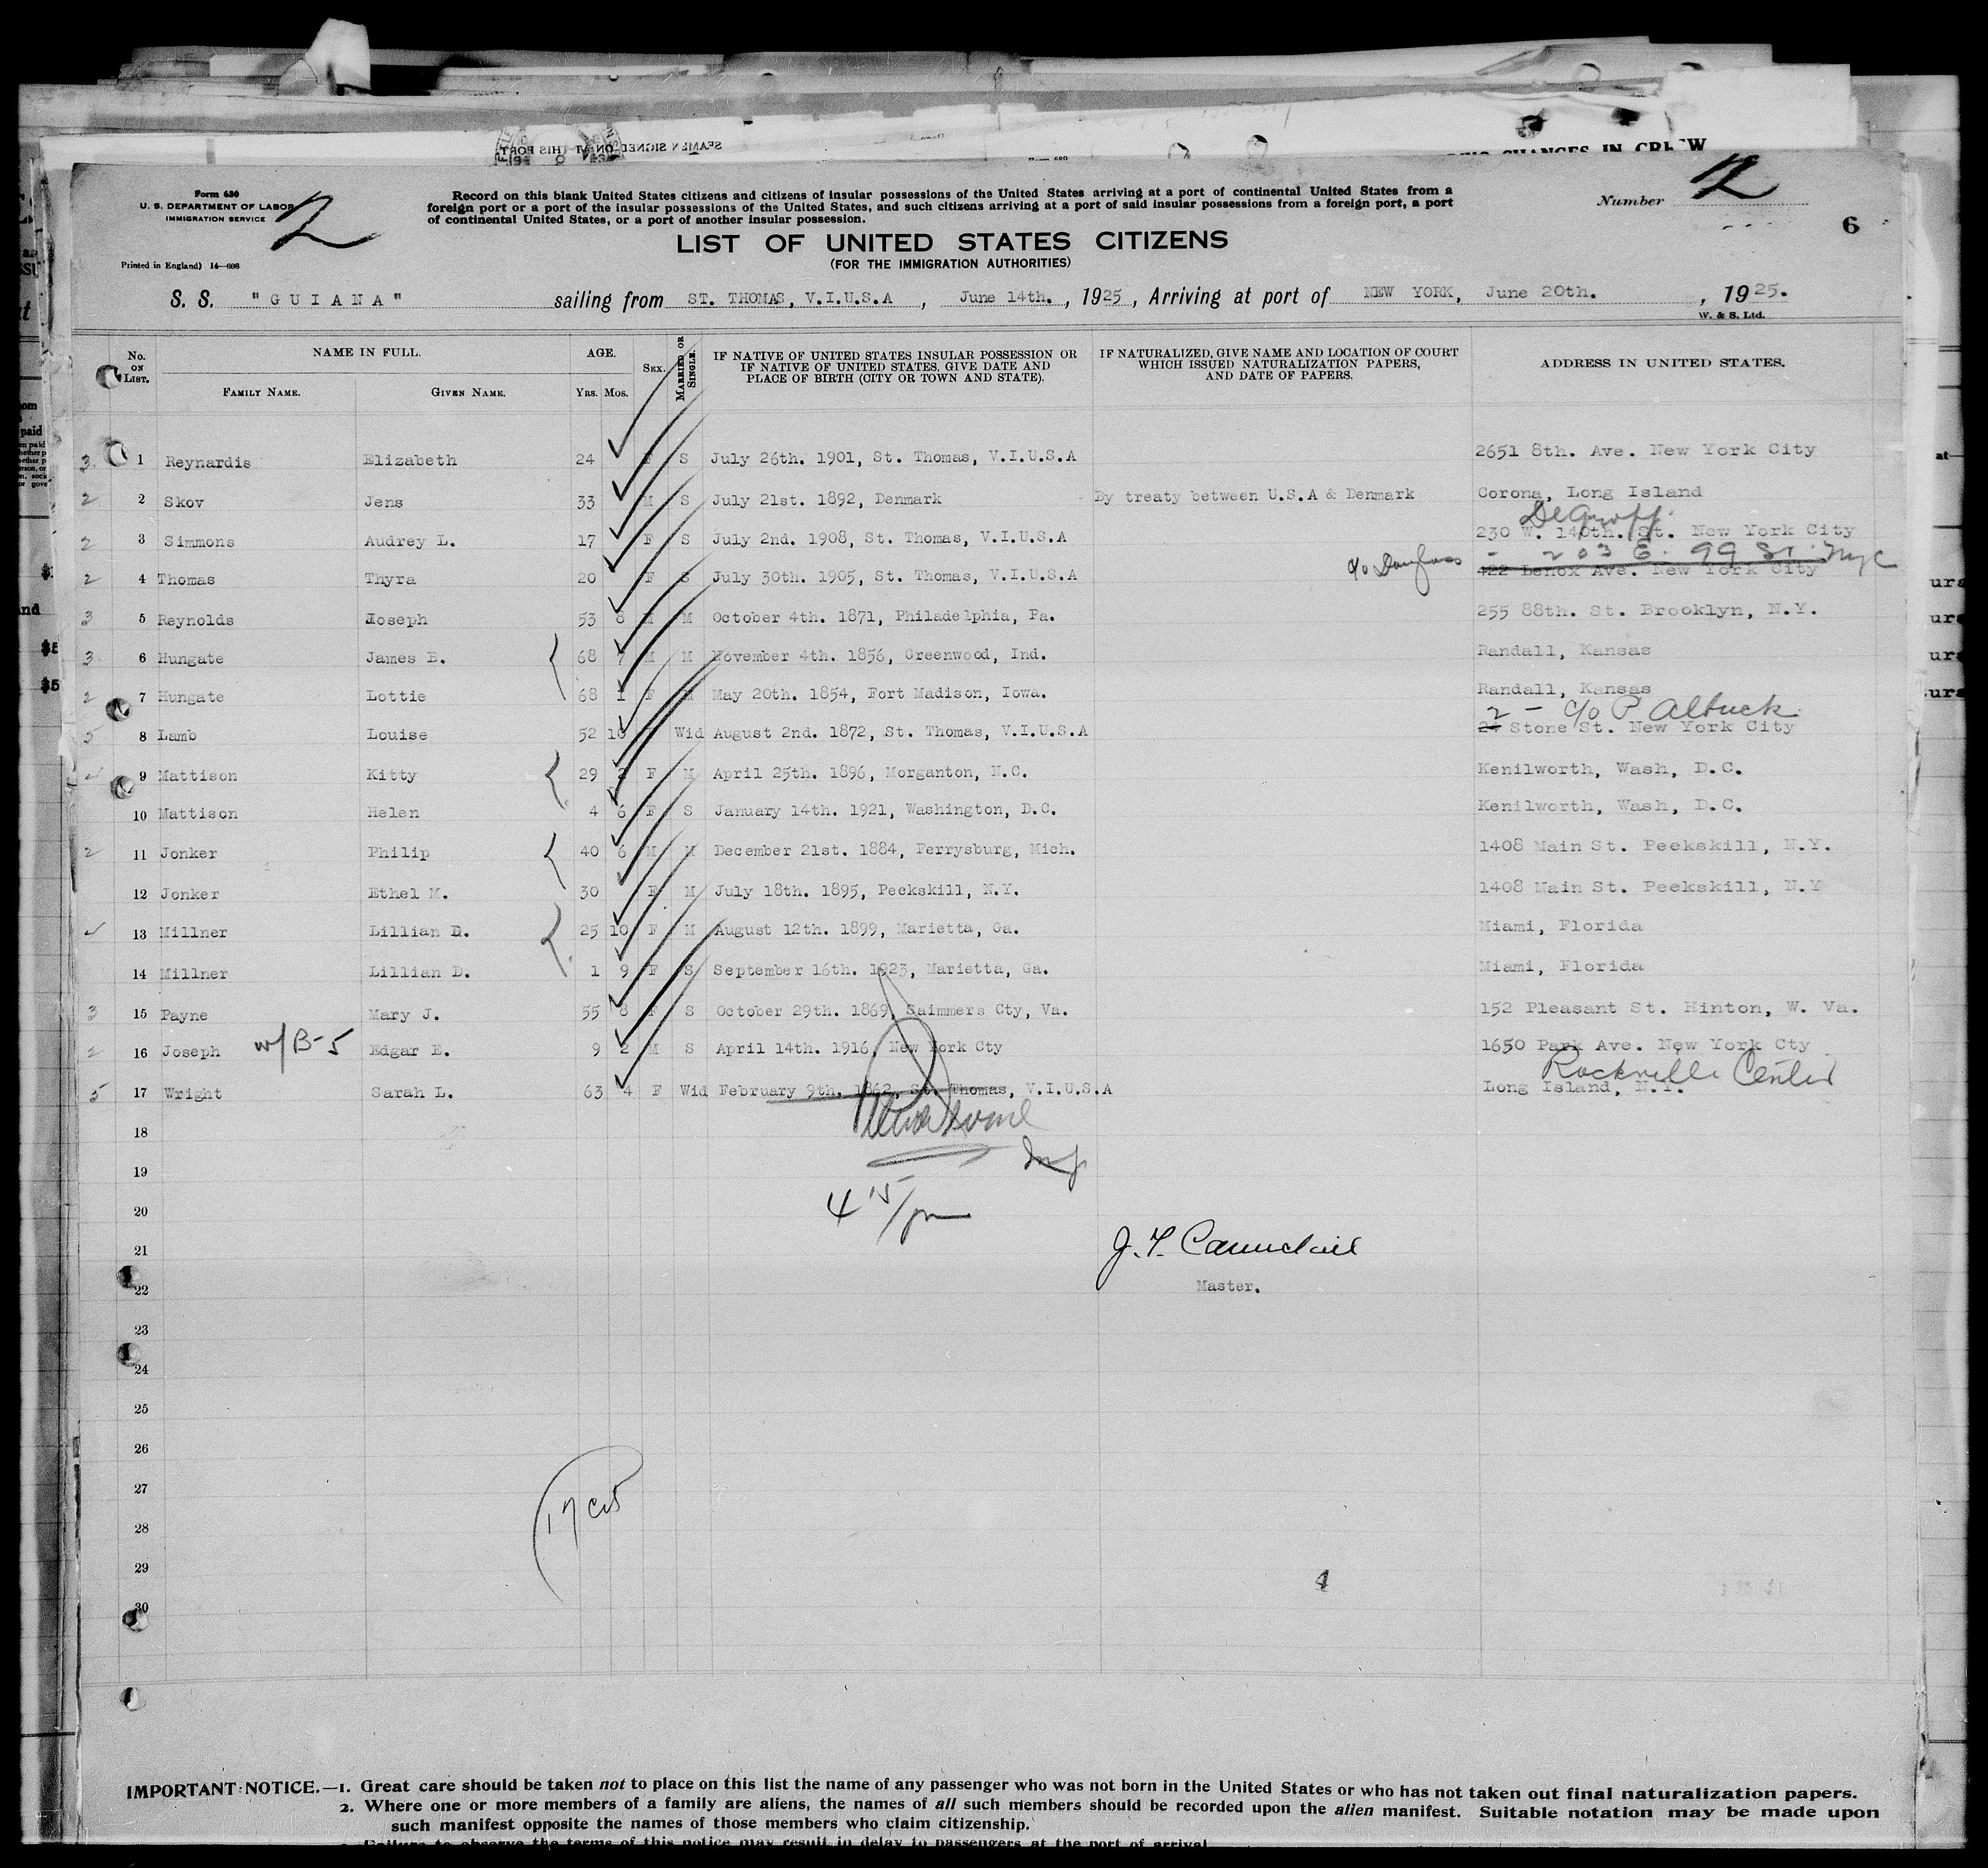 SEAMEN SIGNED ON AT THIS PORT.
CHANGES IN CREW
Form 630
U. S. DEPARTMENT OF LABOR
IMMIGRATION SERVICE
2
Record on this blank United States citizens and citizens of insular possessions of the United States arriving at a port of continental United States from a
foreign port or a port of the insular possessions of the United States, and such citizens arriving at a port of said insular possessions from a foreign port, a port
of continental United States, or a port of another insular possession.
Number 2
6
LIST OF UNITED STATES CITIZENS
(FOR THE IMMIGRATION AUTHORITIES)
Printed in England) 14—606
S. S. "GUIANA" sailing from ST. THOMAS, V.I.U.S.A, June 14th., 1925, Arriving at port of NEW YORK, June 20th., 1925.
W. & S. Ltd.
No. ON LIST. NAME IN FULL. AGE. SEX. MARRIED OR SINGLE. IF NATIVE OF UNITED STATES INSULAR POSSESSION OR IF NATIVE OF UNITED STATES, GIVE DATE AND PLACE OF BIRTH (CITY OR TOWN AND STATE). IF NATURALIZED, GIVE NAME AND LOCATION OF COURT WHICH ISSUED NATURALIZATION PAPERS, AND DATE OF PAPERS. ADDRESS IN UNITED STATES.
FAMILY NAME. GIVEN NAME. YRS. MOS.
3 1 Reynardis Elizabeth 24 F S July 26th. 1901, St. Thomas, V.I.U.S.A 2651 8th. Ave. New York City
2 2 Skov Jens 33 M S July 21st. 1892, Denmark By treaty between U.S.A & Denmark Corona, Long Island
2 3 Simmons Audrey L. 17 F S July 2nd. 1908, St. Thomas, V.I.U.S.A 230 W. 140th. St. New York City
c/o Douglass - 203 E. 99 St. NYC
2 4 Thomas Thyra 20 F S July 30th. 1905, St. Thomas, V.I.U.S.A 422 Lenox Ave. New York City
3 5 Reynolds Joseph 53 8 M M October 4th. 1871, Philadelphia, Pa. 255 88th. St. Brooklyn, N.Y.
3 6 Hungate James B. 68 7 M M November 4th. 1856, Greenwood, Ind. Randall, Kansas
2 7 Hungate Lottie 68 1 F M May 20th. 1854, Fort Madison, Iowa. Randall, Kansas
2 - c/o P Albuck
5 8 Lamb Louise 52 10 Wid August 2nd. 1872, St. Thomas, V.I.U.S.A 24 Stone St. New York City
9 Mattison Kitty 29 2 F M April 25th. 1896, Morganton, N.C. Kenilworth, Wash, D.C.
10 Mattison Helen 4 6 F S January 14th. 1921, Washington, D.C. Kenilworth, Wash, D.C.
2 11 Jonker Philip 40 6 M M December 21st. 1884, Ferrysburg, Mich. 1408 Main St. Peekskill, N.Y.
12 Jonker Ethel M. 30 F M July 18th. 1895, Peekskill, N.Y. 1408 Main St. Peekskill, N.Y
13 Millner Lillian D. 25 10 F M August 12th. 1899, Marietta, Ga. Miami, Florida
14 Millner Lillian D. 1 9 F S September 16th. 1923, Marietta, Ga. Miami, Florida
3 15 Payne Mary J. 55 8 F S October 29th. 1869, Saimmers Cty, Va. 152 Pleasant St. Hinton, W. Va.
2 16 Joseph w/B-5 Edgar E. 9 2 M S April 14th. 1916, New York Cty 1650 Park Ave. New York Cty
Rockville Center
5 17 Wright Sarah L. 63 4 F Wid February 9th. 1862, St. Thomas, V.I.U.S.A Long Island, N.Y.
18
19
20
4 15/pm
21
22
Master.
23
24
25
26
27
17 cit
28
29
30
IMPORTANT NOTICE.—1. Great care should be taken not to place on this list the name of any passenger who was not born in the United States or who has not taken out final naturalization papers.
2. Where one or more members of a family are aliens, the names of all such members should be recorded upon the alien manifest. Suitable notation may be made upon
such manifest opposite the names of those members who claim citizenship.
Failure to observe the terms of this notice may result in delay to passengers at the port of arrival